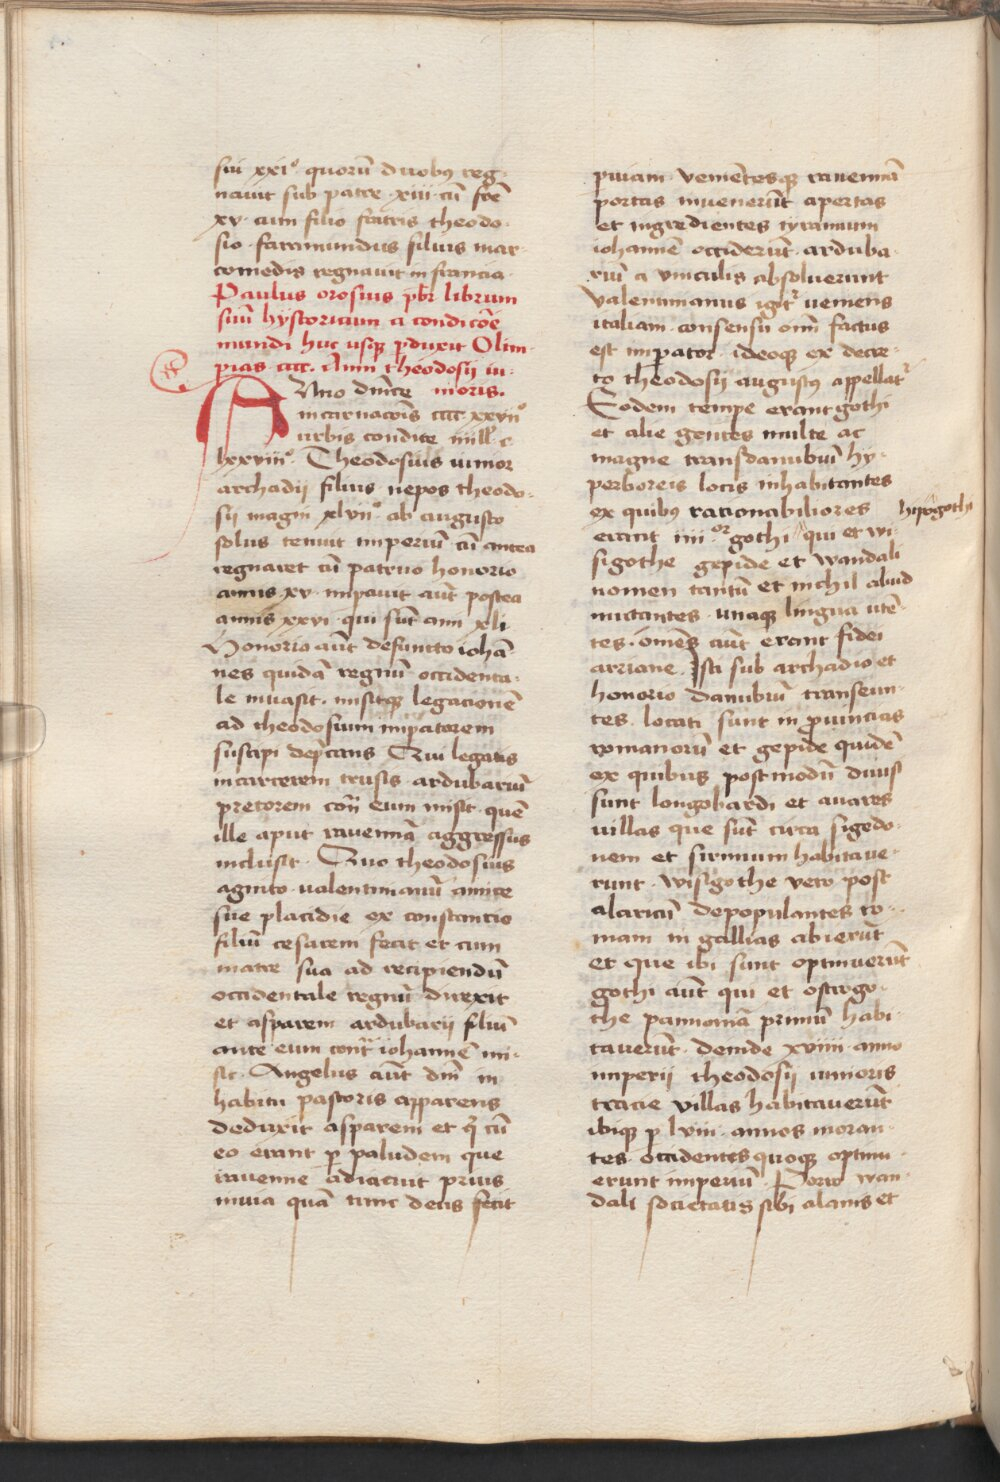 sui xxi° quorū duobꝰ reg-
nauit sub patre · xiii · cū frē
xv · cum filio fratris theodo-
sio · faramundus filius mar-
comedis regnauit in francia ·
Paulus orosius pb̄r librum
suū hystoricum a condicōe
mundi huc usqꝫ ꝑduxit Olim-
pias ccc. Anni theodosij iu-
nioris.
Anno dn̄ice
incarnacōis cccc xxvii°
urbis condite mill̄ c
lxxviii° · Theodosius iunior
archadij filius nepos theodo-
sij magni xlvii° ab augusto
solus tenuit imperiū cū antea
regnaret cū patruo honorio
annis xv · impauit aūt postea
annis xxvi · qui sūt anni xli
Honorio aūt defuncto iohā-
nes quidā regnū occidenta-
le inuasit · misitqꝫ legacionē
ad theodosium impatorem
suscipi dep̄cans Qui legatis
in carcerem trusis · ardubariū
pretorem cont̄ eum misit quē
ille aput rauennā aggressus
inclusit · Quo theodosius
agnito · ualentinianū amite
sue placidie ex constancio
filiū cesarem fecit et cum
matre sua ad recipiendū
occidentale regnū direxit
et asparem ardubarij filiū
ante eum cont̄ iohannē mi-
sit · Angelus aūt dn̄i in
habitu pastoris apparens
deduxit asparem et q̄ cū
eo erant ꝑ paludem que
rauenne adiacuit prius
inuia quā tunc deus fecit
puiam · venientesqꝫ rauennā
portas inuenerūt apertas
et ingredientes tyrannum
iohannē occiderūt · arduba-
riū a vinculis absoluerunt
Valentinianus igit᷑ ueniens
italiam · consensu om̄ factus
est impator · ideoqꝫ ex decre-
to theodosij augustꝰ appellat᷑
Eodem tempe erant gothi
et alie gentes multe ac
magne transdanubiū hy-
perboreis locis inhabitantes
ex quibꝰ rationabiliores
erant iiii or gothi qui et wi-
hijpogothi
sigothe gepide et wandali
nomen tantū et nichil aliud
mutantes · unaqꝫ lingua utē-
tes · om̄es aūt erant fidei
arriane Isti sub archadio et
honorio danubiū transeun-
tes · locati sunt in prouincias
romanorū et gepide quidē
ex quibus postmodū diuisi
sunt longobardi et auares
uillas que sūt circa sigedo-
nem et sirmium habitaue-
runt · wisigothe vero post
alaricū depopulantes ro-
mam in gallias abierūt
et que ibi sunt optinuerūt
gothi aūt qui et ostrogo-
the pannoniā primū habi-
tauerūt · deinde xviiii · anno
imperij theodosij iunioris
tracie villas habitauerūt
ibiqꝫ ꝑ lviii · annos moran-
tes · occidentis quoqꝫ optinu-
erunt imperiū · Porro wan-
dali societatis sibi alanis et